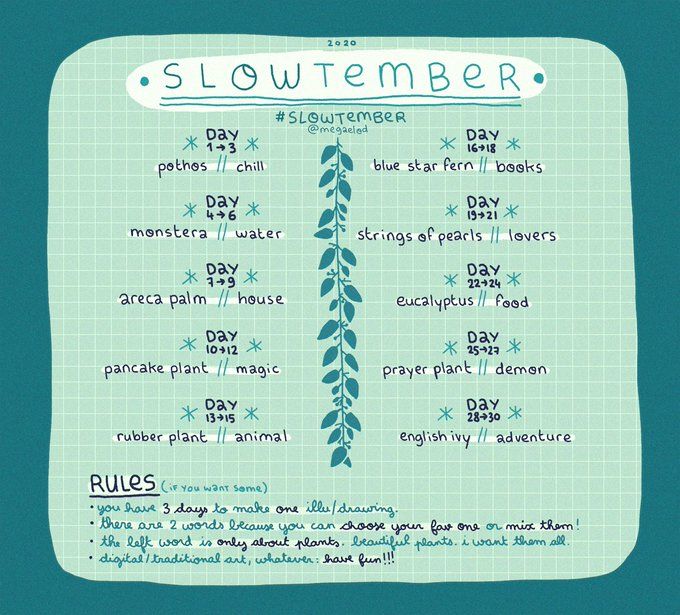 2020
SLOWTEMBER
#SLOWTEMBER
@megaelod
Day
1→3
pothos // chill
Day
4→6
monstera // water
Day
7→9
areca palm // house
Day
10→12
pancake plant // magic
Day
13→15
rubber plant // animal
Day
16→18
blue star fern // books
Day
19→21
strings of pearls // lovers
Day
22→24
eucalyptus // food
Day
25→27
prayer plant // demon
Day
28→30
english ivy // adventure
RULES (if you want some)
• you have 3 days to make one illu/drawing.
• there are 2 words because you can choose your fav one or mix them!
• the left word is only about plants. beautiful plants. i want them all.
• digital/traditional art, whatever: have fun!!!